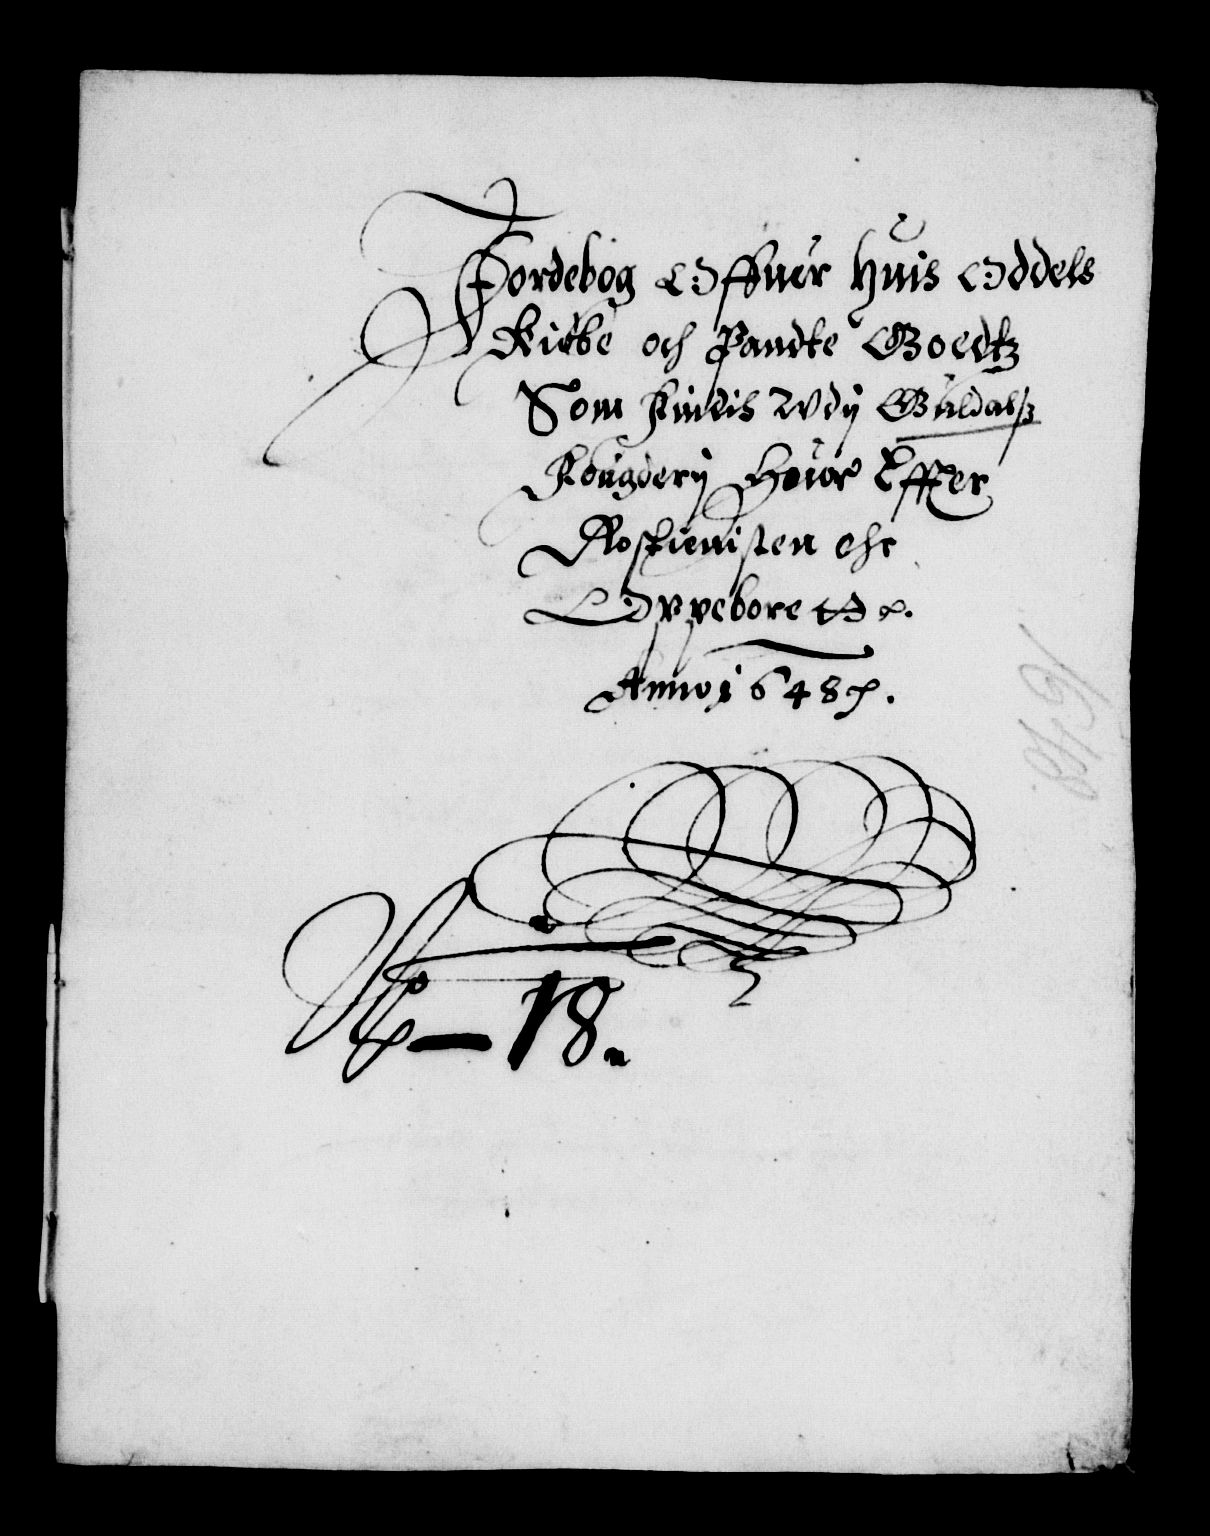 Jordebog Offuer huis Oddels
Kiøbe och Pandte Goedtz
Som findis Udij Guldalß
Fougderij Huor Effter
Rostienisten ehr
Oppebore etc.
Anno 1648.
N: – 18.
1648